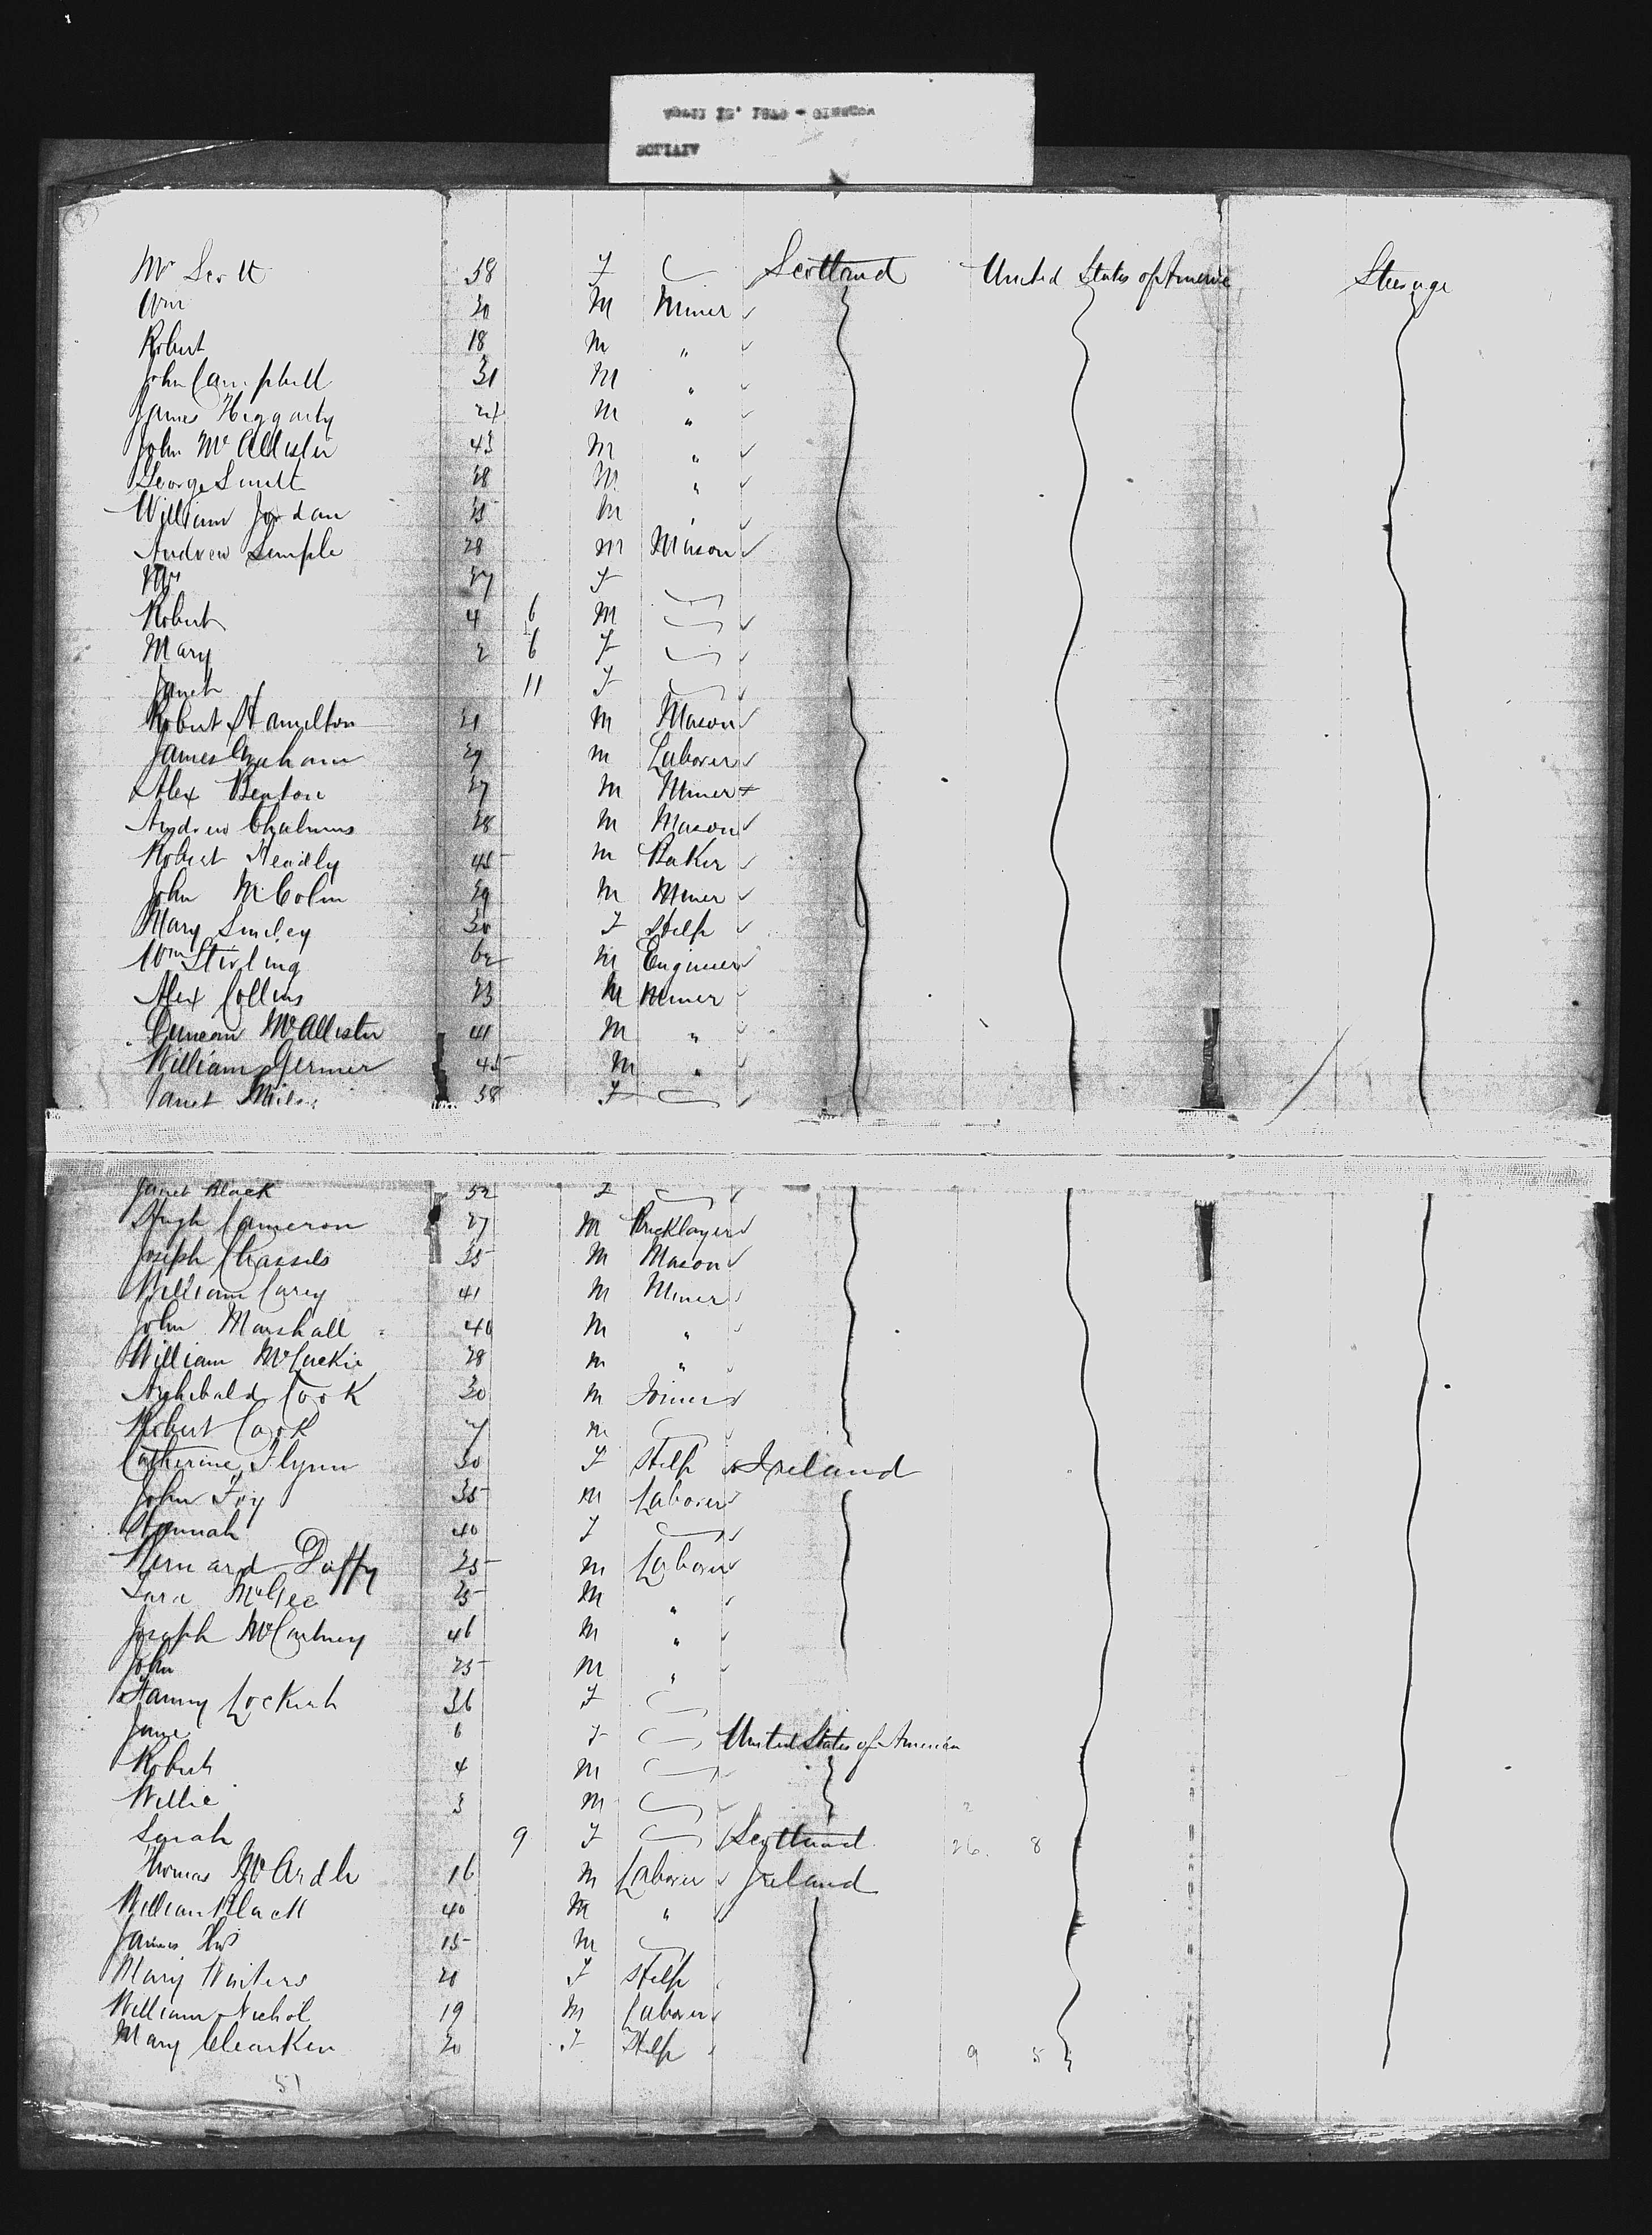 Mrs Scott 58 F Scotland United States of America Steerage
Wm 20 M Miner
Robert 18 M "
John Campbell 31 M "
James Heggarty 24 M "
John McAllister 43 M "
George Smith 38 M "
William Jordan 35 M "
Andrew Semple 28 M Mason
Mrs 27 F
Robert 4 6 M
Mary 2 6 F
Janet 11 F
Robert Hamilton 21 M Mason
James Graham 29 M Laborer
Alex Benton 27 M Miner
Andrew Chalmers 28 M Mason
Robert 45 M Baker
John McColm 39 M Miner
Mary Smiley 30 F Help
Wm Stirling 62 M Engineer
Alex Collins 23 M Miner
Duncan McAllister 41 M "
William Germer 45 M "
Janet 58 F
Janet Black 52 F
Hugh Cameron 27 M Bricklayer
Joseph Chassels 35 M Mason
William Carey 41 M Miner
John Marshall 40 M "
William McLuckie 28 M "
Archibald Cook 30 M Joiner
Robert Cook 7 M
Catherine Flynn 30 F Help Ireland
John Foy 35 M Laborer
Hannah 40 F
Bernard Duffy 25 M Laborer
McGee 25 M "
Joseph McCartney 46 M "
John 25 M "
Fanny Lockert 36 F
Jane 6 F United States of America
Robert 4 M
Willie 3 M
Sarah 9 F Scotland 26. 8
Thomas McArdle 16 M Laborer Ireland
William Black 40 M "
James 15 M
Mary Winters 20 F Help
William Nichol 19 M Laborer
Mary Clearken 20 F Help 9 5
51